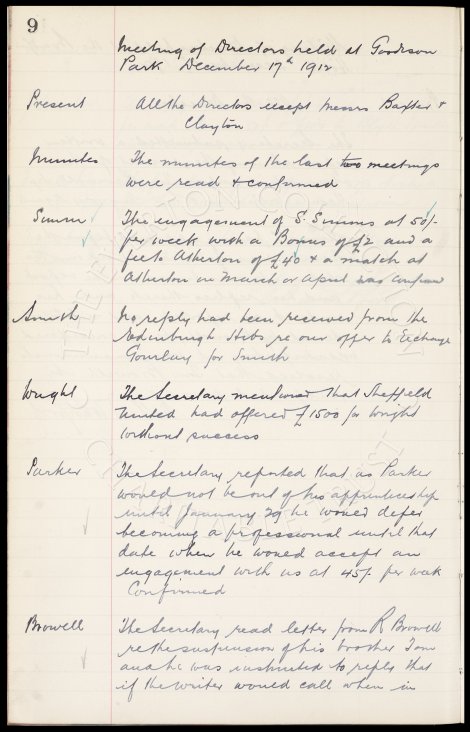 9
Meeting of Directors held at Goodison
Park December 17th 1912
Present All the Directors except Messrs Baxter &
Clayton
Minutes The minutes of the last two meetings
were read & confirmed
Simm The engagement of S. Simms at 50/-
per week with a Bonus of £2 and a
fee to Atherton of £40 & a match at
Atherton in March or April was confirmed
Smith No reply had been received from the
Edinburgh Hibs re our offer to Exchange
Gourlay for Smith
Wright The Secretary mentioned that Sheffield
United had offered £1500 for Wright
without success
Parker The Secretary reported that as Parker
would not be out of his apprenticeship
until January 29 he would defer
becoming a professional until that
date when he would accept an
engagement with us at 45/- per week
Confirmed
Browell The Secretary read letter from R Browell
re the suspension of his brother Tom
and he was instructed to reply that
if the writer would call when in